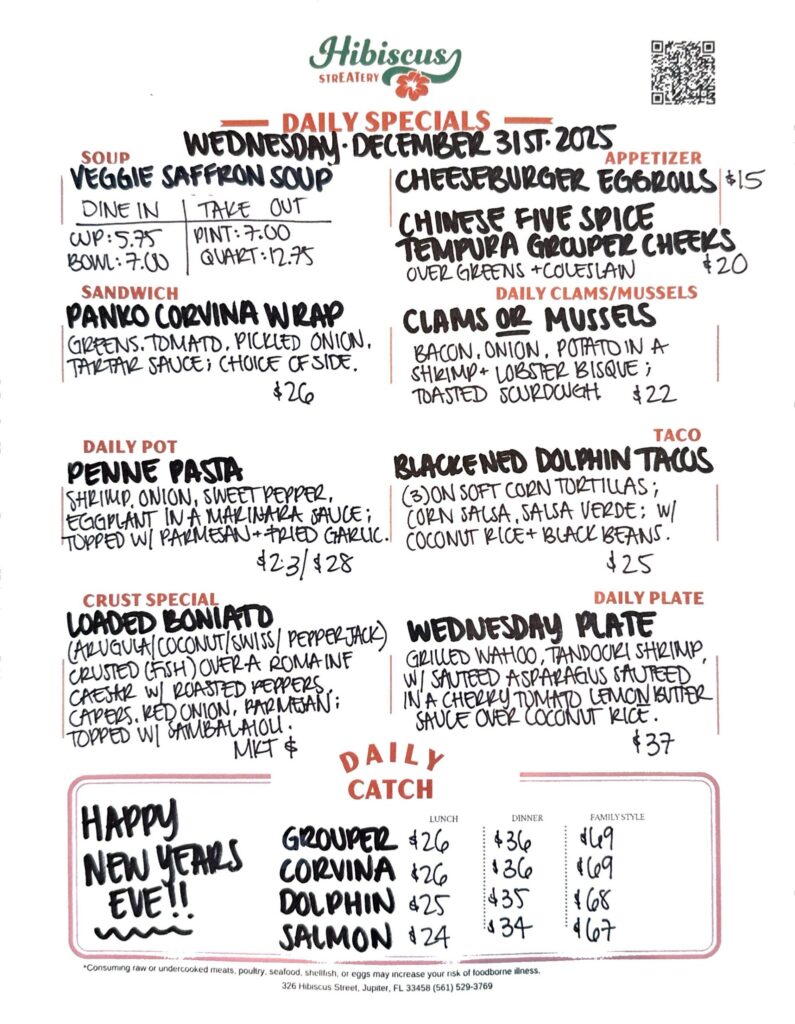 Hibiscus
STREATERY
DAILY SPECIALS
WEDNESDAY · DECEMBER 31ST · 2025
SOUP
VEGGIE SAFFRON SOUP
DINE IN | TAKE OUT
CUP: 5.75 | PINT: 7.00
BOWL: 7.00 | QUART: 12.75
APPETIZER
CHEESEBURGER EGGROLLS $15
CHINESE FIVE SPICE
TEMPURA GROUPER CHEEKS
OVER GREENS + COLESLAW $20
SANDWICH
PANKO CORVINA WRAP
GREENS, TOMATO, PICKLED ONION,
TARTAR SAUCE; CHOICE OF SIDE.
$26
DAILY CLAMS/MUSSELS
CLAMS OR MUSSELS
BACON, ONION, POTATO IN A
SHRIMP + LOBSTER BISQUE;
TOASTED SOURDOUGH $22
DAILY POT
PENNE PASTA
SHRIMP, ONION, SWEET PEPPER,
EGGPLANT IN A MARINARA SAUCE;
TOPPED W/ PARMESAN + FRIED GARLIC.
$23/$28
TACO
BLACKENED DOLPHIN TACOS
(3) ON SOFT CORN TORTILLAS;
CORN SALSA, SALSA VERDE; W/
COCONUT RICE + BLACK BEANS.
$25
CRUST SPECIAL
LOADED BONIATO
(ARUGULA/COCONUT/SWISS/PEPPERJACK)
CRUSTED (FISH) OVER A ROMAINE
CAESAR W/ ROASTED PEPPERS,
CAPERS, RED ONION, PARMESAN;
TOPPED W/ SAMBALAIOLI.
MKT $
DAILY PLATE
WEDNESDAY PLATE
GRILLED WAHOO, TANDOORI SHRIMP,
W/ SAUTEED ASPARAGUS SAUTEED
IN A CHERRY TOMATO LEMON BUTTER
SAUCE OVER COCONUT RICE.
$37
DAILY
CATCH
HAPPY
NEW YEARS
EVE!!
LUNCH DINNER FAMILY STYLE
GROUPER $26 $36 $69
CORVINA $26 $36 $69
DOLPHIN $25 $35 $68
SALMON $24 $34 $67
*Consuming raw or undercooked meats, poultry, seafood, shellfish, or eggs may increase your risk of foodborne illness.
326 Hibiscus Street, Jupiter, FL 33458 (561) 529-3769